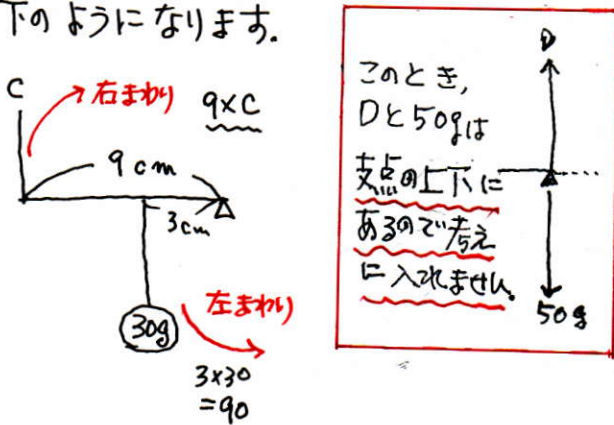 下のようになります.
C
右まわり
9×C
9cm
3cm
30g
左まわり
3×30
=90
D
このとき,
Dと50gは
支点の上下に
あるので考え
に入れません.
50g